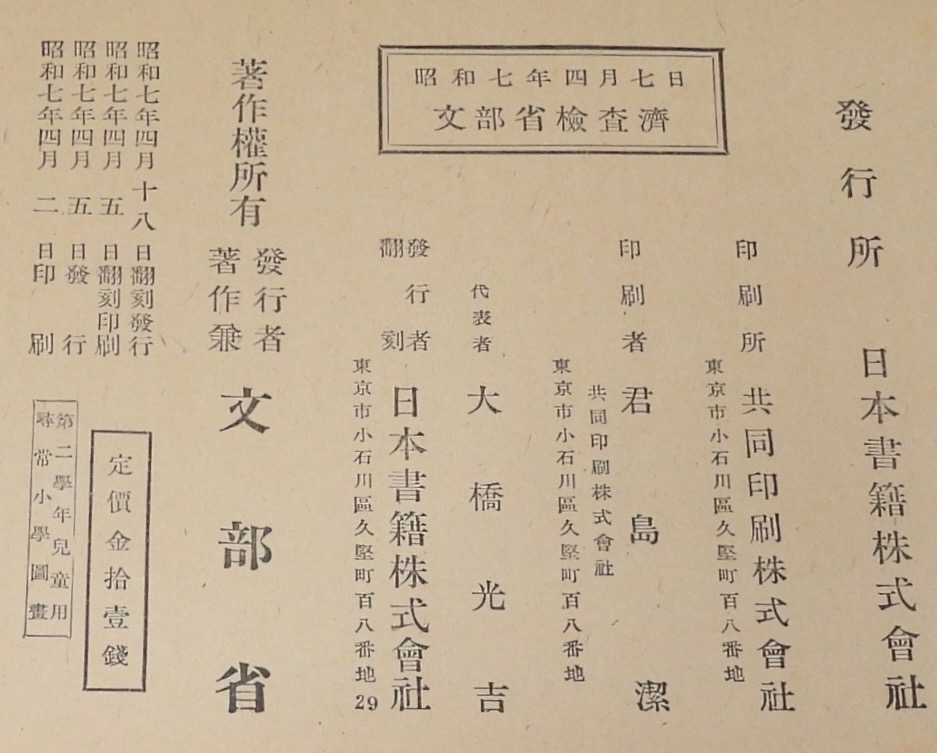 發行所 日本書籍株式會社
昭和七年四月七日
文部省檢査濟
印刷所 共同印刷株式會社
東京市小石川區久堅町百八番地
印刷者 君島潔
共同印刷株式會社
東京市小石川區久堅町百八番地
代表者 大橋光吉
翻刻發行者 日本書籍株式會社
東京市小石川區久堅町百八番地
29
著作權所有
著作兼發行者 文部省
昭和七年四月十八日翻刻發行
昭和七年四月五日翻刻印刷
昭和七年四月五日發行
昭和七年四月二日印刷
定價金拾壹錢
第二學年兒童用
尋常小學圖畫